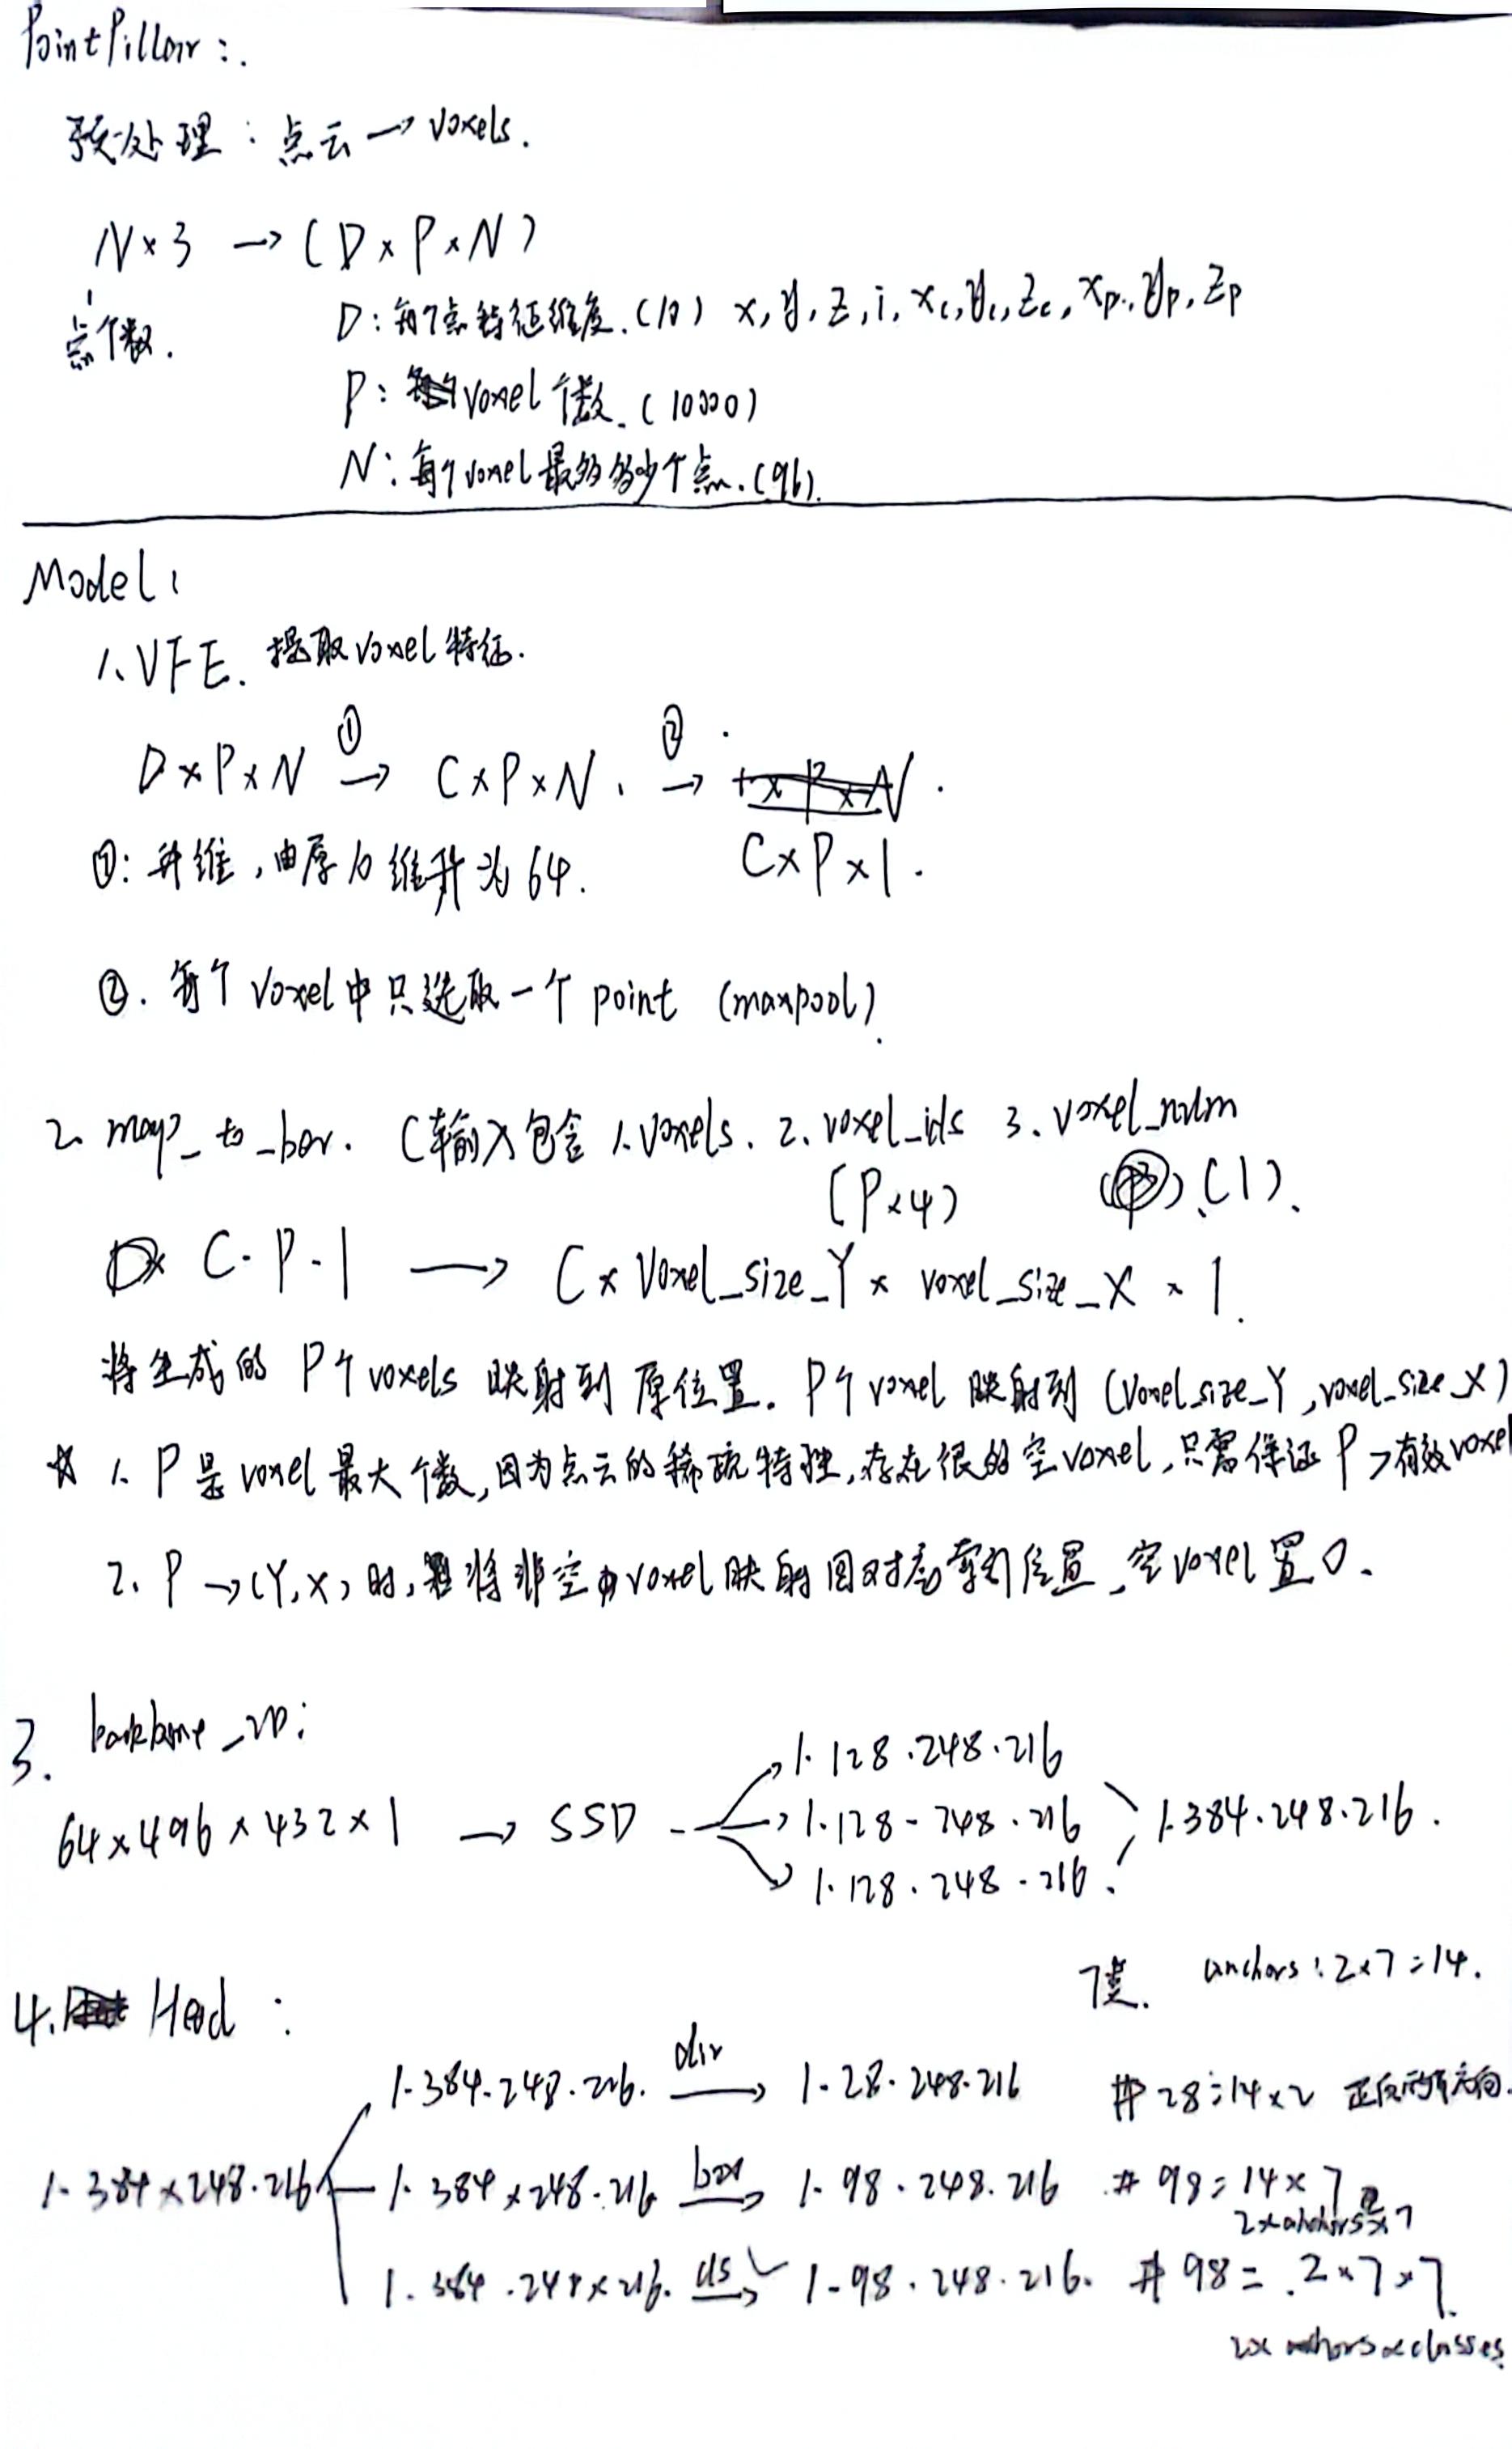 PointPillar:.
预处理：点云→voxels.
N×3 → (D×P×N)
点个数.
D：每个点特征维度.(10) x, y, z, i, xc, yc, zc, xp, yp, zp
P：voxel个数.(10000)
N：每个voxel最多多少个点.(96).
Model:
1、VFE. 提取voxel特征.
D×P×N ①→ C×P×N. ②→
C×P×1.
①：升维，由原10维升为64.
②. 每个voxel中只选取一个point (maxpool).
2. map_to_bev. (输入包含 1.voxels. 2. voxel_ids 3. voxel_num
(P×4) (1).
C·P·1 → C×Voxel_size_Y × voxel_size_X × 1.
将生成的 P个voxels 映射到原位置. P个voxel 映射到 (voxel_size_Y, voxel_size_X)
☆ 1. P是voxel最大个数,因为点云的稀疏特性,存在很多空voxel,只需保证 P>有效voxel
2. P→(Y,X)时,将非空voxel映射回对应索引位置,空voxel置0.
3. backbone_2D:
64×496×432×1 → SSD
1·128·248·216
1·128·248·216
1·128·248·216.
1·384·248·216.
7类. anchors: 2×7=14.
4. Head :
1·384·248·216. dir→ 1·28·248·216 # 28=14×2 正反两个方向.
1·384×248·216 1·384×248·216 box→ 1·98·248·216 # 98=14×7
2×anchors×7
1·384·248×216. cls→ 1·98·248·216. # 98=2×7×7.
2×anchors×classes.